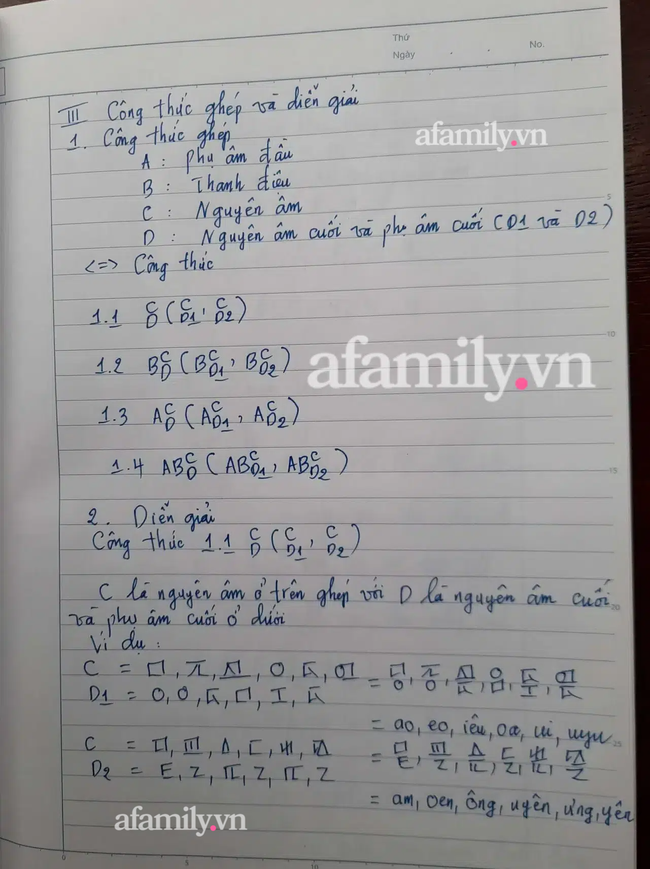 Thứ
Ngày . . No.
afamily.vn
III Công thức ghép và diễn giải
1. Công thức ghép
A : Phụ âm đầu
B : Thanh điệu
C : Nguyên âm
D : Nguyên âm cuối và phụ âm cuối (D1 và D2)
<=> Công thức
1.1 C D (C D1, C D2)
1.2 B C D (B C D1, B C D2)
afamily.vn
1.3 A C D (A C D1, A C D2)
1.4 AB C D (AB C D1, AB C D2)
2. Diễn giải
Công thức 1.1 C D (C D1, C D2)
C là nguyên âm ở trên ghép với D là nguyên âm cuối
và phụ âm cuối ở dưới
Ví dụ :
C =
D1 =
= ao, eo, iêu, oa, ui, uyu
C =
D2 =
= am, oen, ông, uyên, ưng, yên
afamily.vn
5
10
15
20
25
0
10